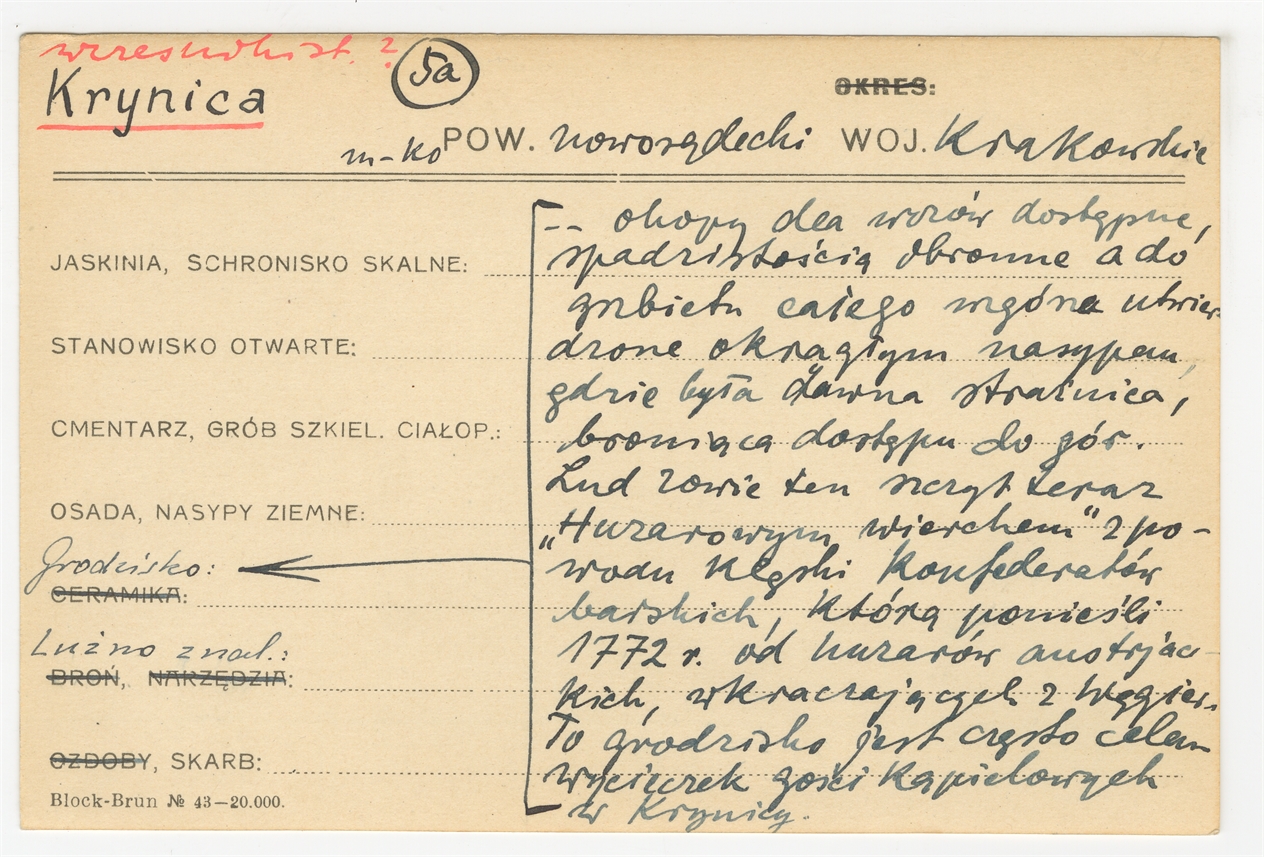 wczesnohist. ?
Krynica
5a
OKRES:
m-ko POW. nowosądecki WOJ. Krakowskie
-- okopy dla wozów dostępne,
JASKINIA, SCHRONISKO SKALNE:
spadzistością obronne a do
grzbietu całego wzgórza utwier-
STANOWISKO OTWARTE:
dzone okrągłym nasypem,
gdzie była dawna strażnica,
CMENTARZ, GRÓB SZKIEL. CIAŁOP.:
broniąca dostępu do gór.
Lud zowie ten szczyt teraz
OSADA, NASYPY ZIEMNE:
„Huzarowym wierchem" z po-
Grodzisko:
wodu klęski Konfederatów
CERAMIKA:
barskich, którą ponieśli
Luźno znal.:
1772 r. od huzarów austrjac-
BROŃ, NARZĘDZIA:
kich, wkraczających z Węgier.
To grodzisko jest często celem
OZDOBY, SKARB:
wycieczek gości kąpielowych
w Krynicy.
Block-Brun № 43—20.000.